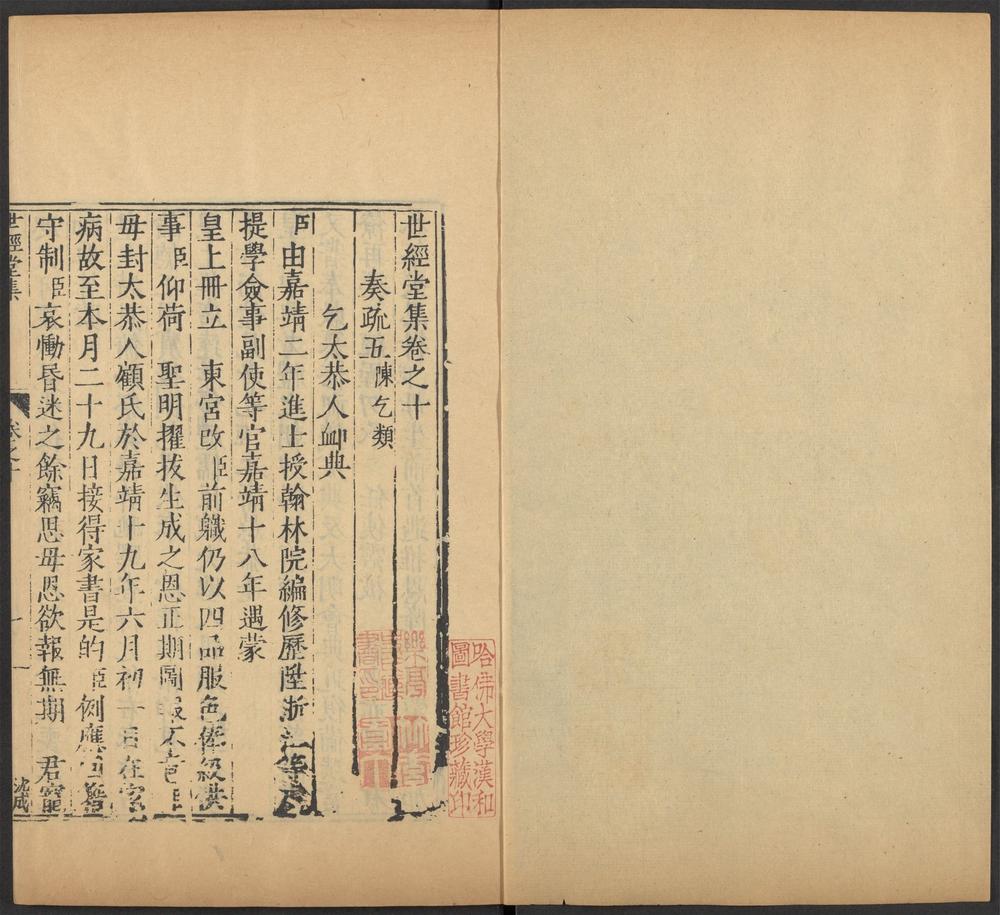 世經堂集卷之十
奏疏五 陳乞類
乞太恭人卹典
臣由嘉靖二年進士授翰林院編修歷陞浙江等
提學僉事副使等官嘉靖十八年遇蒙
皇上冊立 東宮改臣前職仍以四品服色俸級供
事臣仰荷 聖明擢拔生成之恩正期圖報不意臣
母封太恭人顧氏於嘉靖十九年六月初 日在家
病故至本月二十九日接得家書是的臣例應回籍
守制臣哀慟昏迷之餘竊思母恩欲報無期 君寵
世經堂集 卷之十 一
哈佛大學漢和
圖書館珍藏印